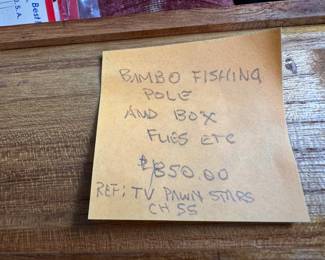 Best
U.S.A.
BIMBO FISHING
POLE
AND BOX
FLIES ETC
$850.00
REF: TV PAWN STARS
CH 55